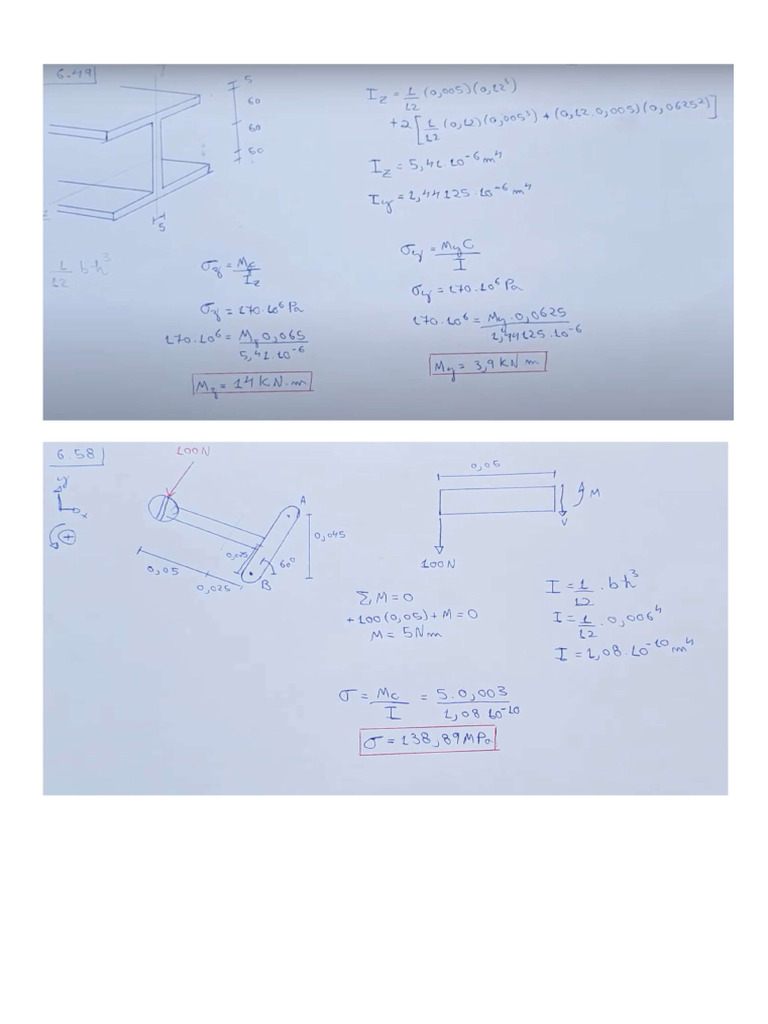 6.49
5
60
60
60
5
1/12 b·h³
I_z = 1/12 (0,005)(0,12³)
+2[1/12 (0,12)(0,005³) + (0,12.0,005)(0,0625²)]
I_z = 5,41.10⁻⁶ m⁴
I_y = 1,44125.10⁻⁶ m⁴
σ_z = Mc/I_z
σ_z = 170.10⁶ Pa
170.10⁶ = M_z 0,065/5,41.10⁻⁶
M_z = 14 KN.m
σ_y = M_y C/I
σ_y = 170.10⁶ Pa
170.10⁶ = M_y.0,0625/1,44125.10⁻⁶
M_y = 3,9 KN m
6.58
y
x
+
100N
A
0,045
0,025
60°
B
0,05
0,025
0,05
M
V
100N
ΣM=0
+100(0,05)+M=0
M = 5Nm
I = 1/12 . bh³
I = 1/12 . 0,006⁴
I = 1,08.10⁻¹⁰ m⁴
σ = Mc/I = 5.0,003/1,08 10⁻¹⁰
σ = 138,89MPa